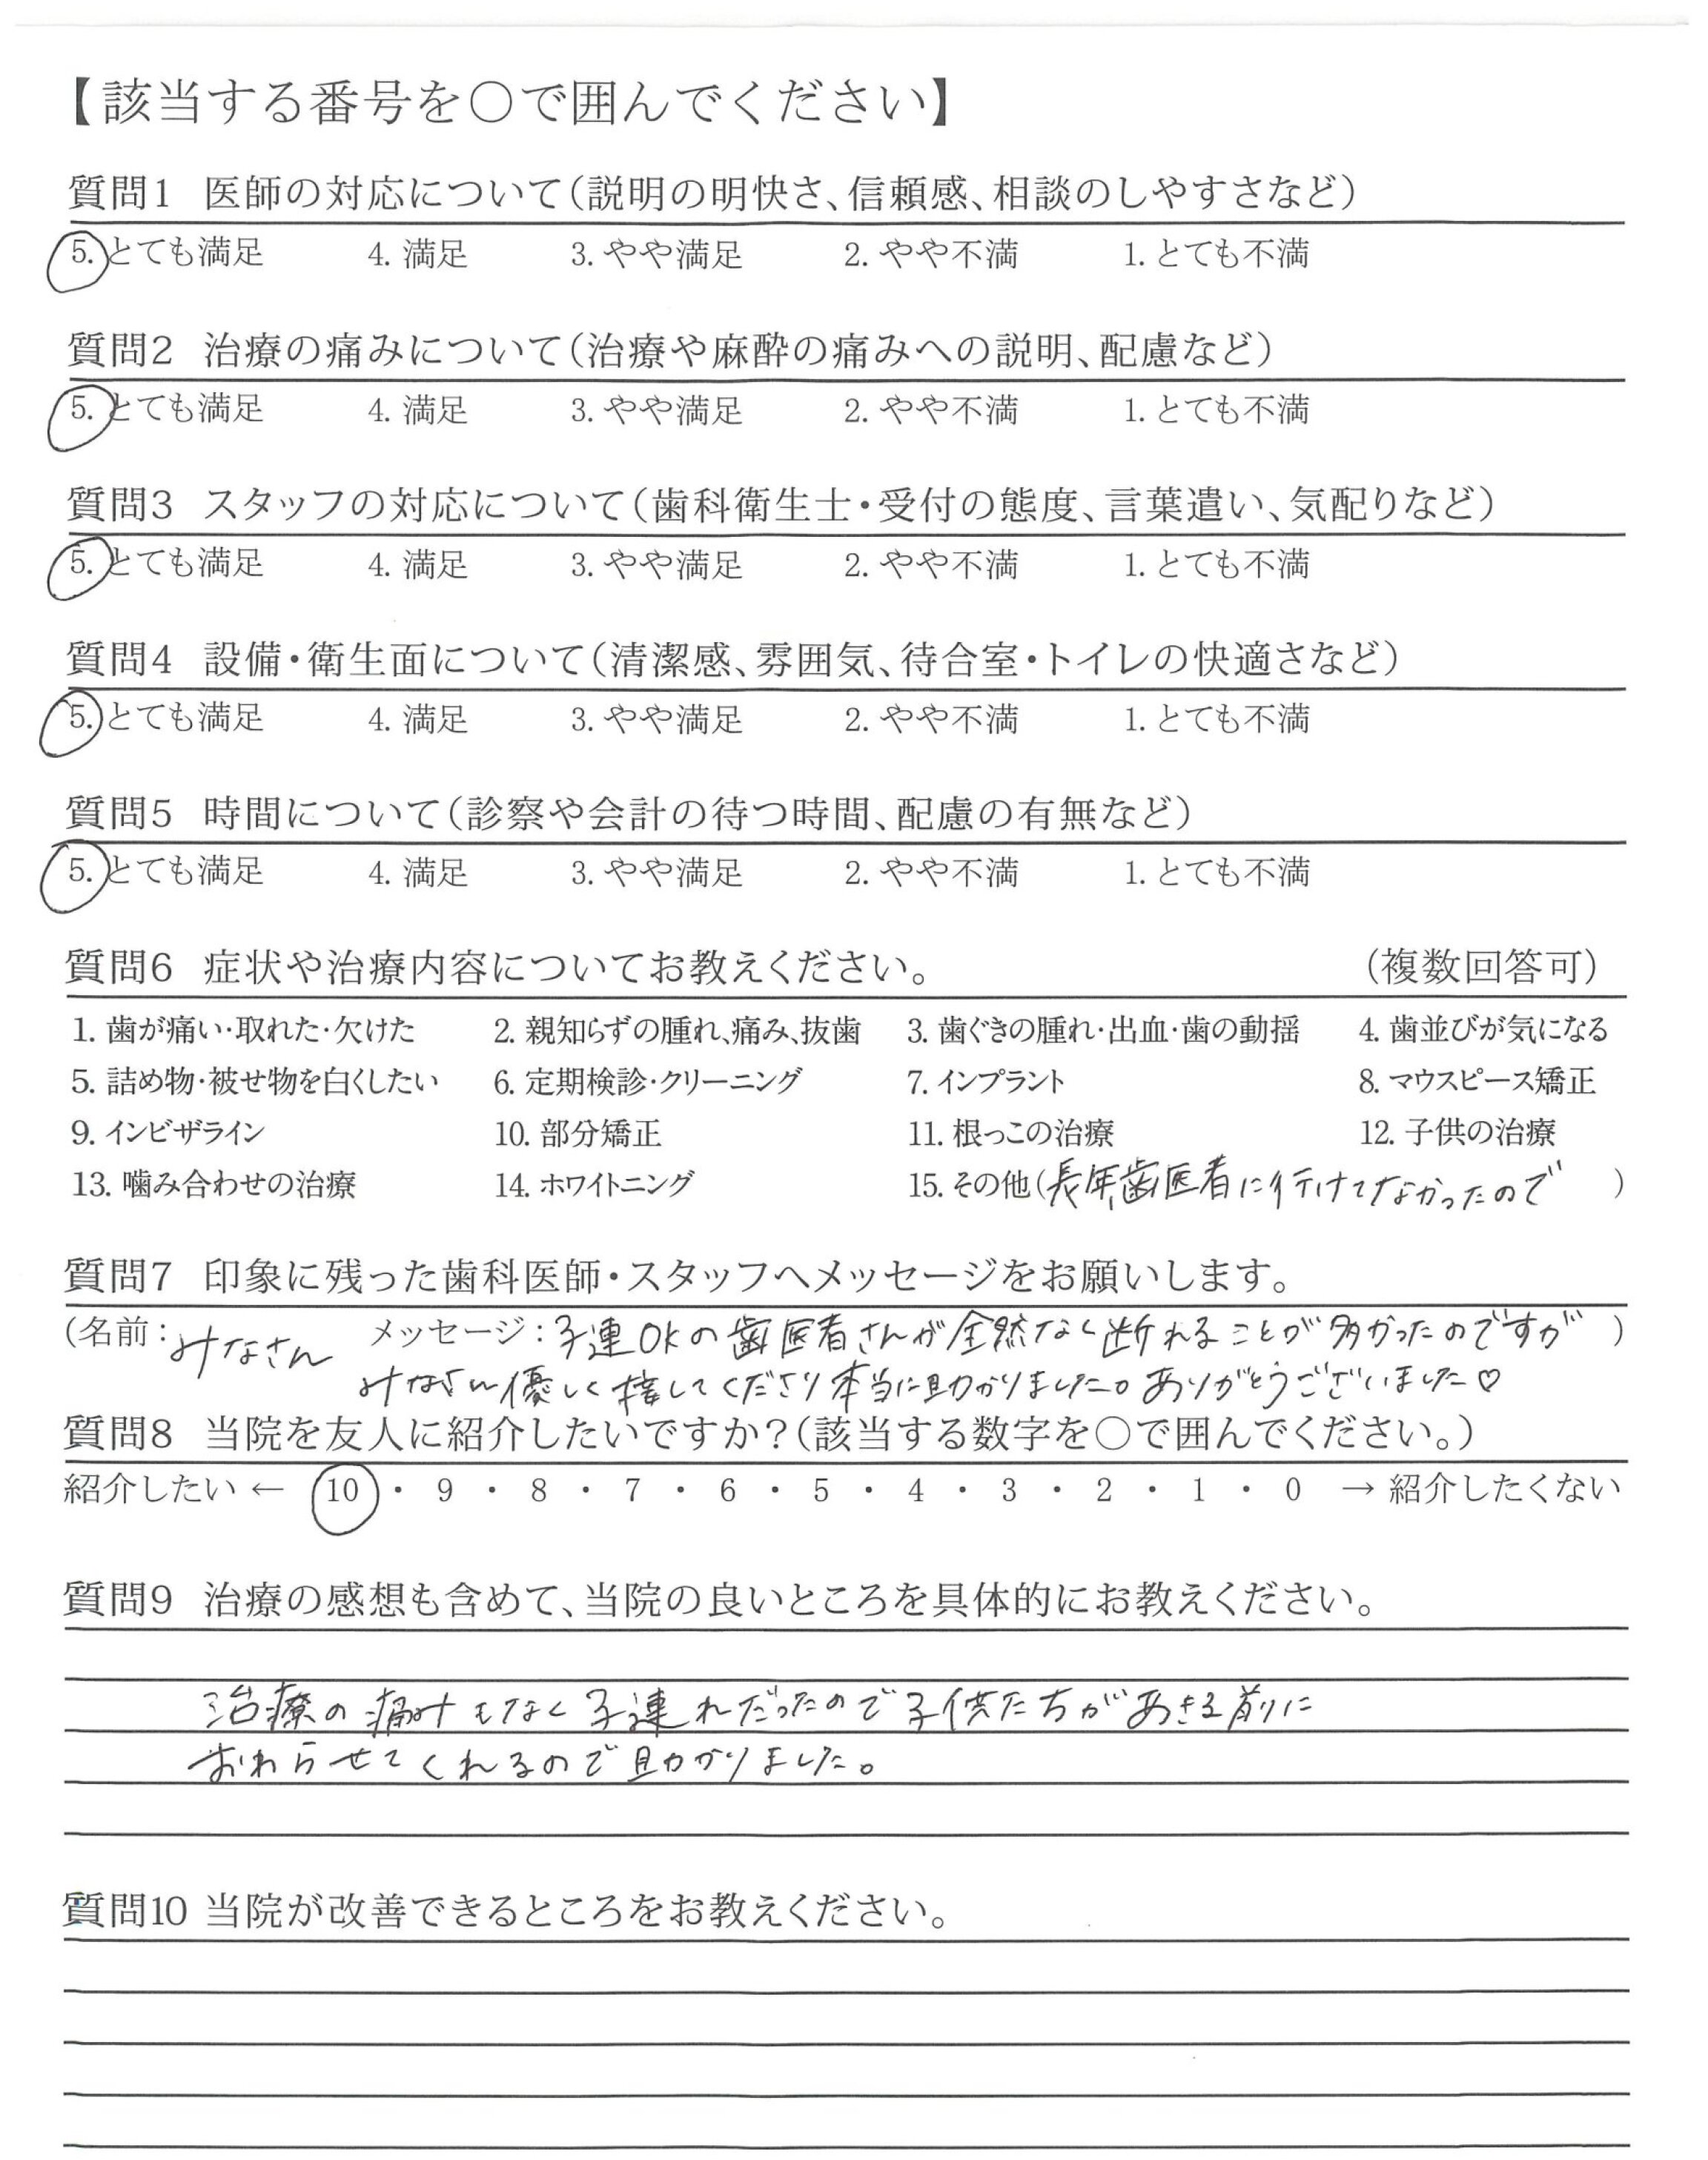 【該当する番号を〇で囲んでください】
質問1 医師の対応について(説明の明快さ、信頼感、相談のしやすさなど)
5. とても満足 4. 満足 3. やや満足 2. やや不満 1. とても不満
質問2 治療の痛みについて(治療や麻酔の痛みへの説明、配慮など)
5. とても満足 4. 満足 3. やや満足 2. やや不満 1. とても不満
質問3 スタッフの対応について(歯科衛生士・受付の態度、言葉遣い、気配りなど)
5. とても満足 4. 満足 3. やや満足 2. やや不満 1. とても不満
質問4 設備・衛生面について(清潔感、雰囲気、待合室・トイレの快適さなど)
5. とても満足 4. 満足 3. やや満足 2. やや不満 1. とても不満
質問5 時間について(診察や会計の待つ時間、配慮の有無など)
5. とても満足 4. 満足 3. やや満足 2. やや不満 1. とても不満
質問6 症状や治療内容についてお教えください。 (複数回答可)
1. 歯が痛い・取れた・欠けた 2. 親知らずの腫れ、痛み、抜歯 3. 歯ぐきの腫れ・出血・歯の動揺 4. 歯並びが気になる
5. 詰め物・被せ物を白くしたい 6. 定期検診・クリーニング 7. インプラント 8. マウスピース矯正
9. インビザライン 10. 部分矯正 11. 根っこの治療 12. 子供の治療
13. 噛み合わせの治療 14. ホワイトニング 15. その他(長年歯医者に行けてなかったので )
質問7 印象に残った歯科医師・スタッフへメッセージをお願いします。
(名前:みなさん メッセージ:子連OKの歯医者さんが全然なく断れることが多かったのですが )
みなさん優しく接してくださり本当に助かりました。ありがとうございました♡
質問8 当院を友人に紹介したいですか?(該当する数字を〇で囲んでください。)
紹介したい ← 10 ・ 9 ・ 8 ・ 7 ・ 6 ・ 5 ・ 4 ・ 3 ・ 2 ・ 1 ・ 0 → 紹介したくない
質問9 治療の感想も含めて、当院の良いところを具体的にお教えください。
治療の痛みもなく子連れだったので子供たちがあきる前に
おわらせてくれるので助かりました。
質問10 当院が改善できるところをお教えください。